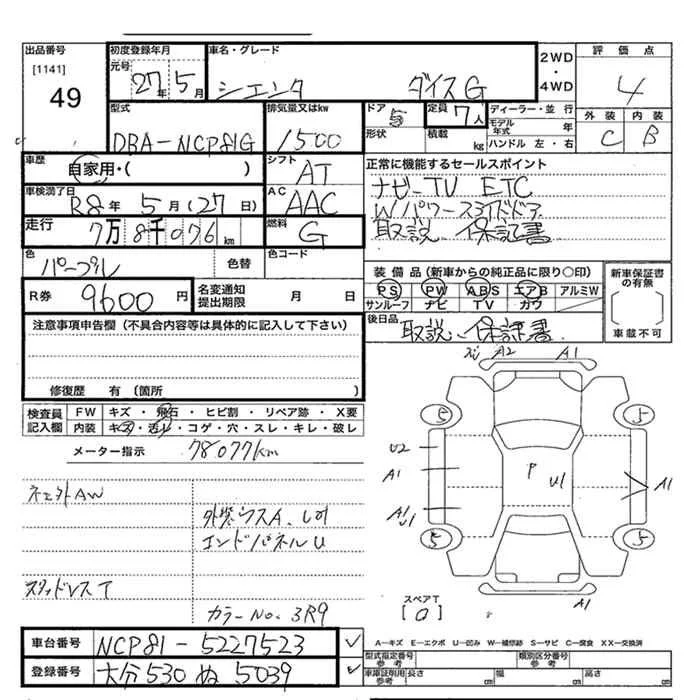 出品番号
[1141]
49
初度登録年月
元号 27年 5月
車名・グレード
シエンタ ダイスG
2WD・4WD
評価点
4
外装 内装
C B
型式
DBA-NCP81G
排気量又はkw
1500
ドア 5
形状
定員 7人
積載 kg
ディーラー・並行
モデル年式 年
ハンドル 左・右
車歴
自家用・( )
シフト
AT
車検満了日
R8年 5月(27日)
AC
AAC
走行
7万8千076km
燃料
G
色
パープル 色替
色コード
R券 9600円
名変通知提出期限 月 日
正常に機能するセールスポイント
ナビ-TV ETC
W/パワースライドドア
取説 保証書
装備品(新車からの純正品に限り○印)
PS PW ABS エアB アルミW
サンルーフ ナビ TV カワ
新車保証書の有無
[ ]
車載不可
後日品
取説、保証書
注意事項申告欄(不具合内容等は具体的に記入して下さい)
修復歴 有(箇所 )
検査員記入欄
FW キズ・飛石・ヒビ割・リペア跡・X要
内装 キズ・汚レ・コゲ・穴・スレ・キレ・破レ
メーター指示 78077km
社外AW
外装キズA、しみ
エンドパネルU
スタッドレスT
カラーNo. 3R9
A2 A1
5 5
U2
A1
P U1
A1
A1
U1
5 5
A1
スペアT
[0]
A―キズ E―エクボ U―凹み W―補修跡 S―サビ C―腐食 XX―交換済
車台番号 NCP81-5227523 ✓
登録番号 大分530 ぬ 5039 ✓
型式指定番号 参考
類別区分番号 参考
車庫証明用参考 長さ cm 幅 cm 高さ cm